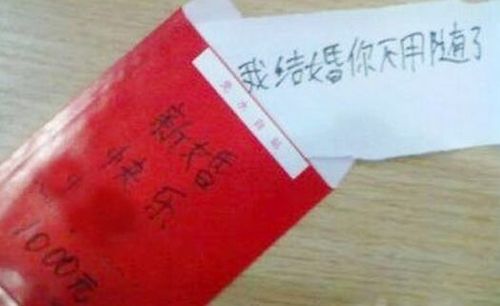 我结婚你不用随了
免水自粘
新婚
快乐
1000元